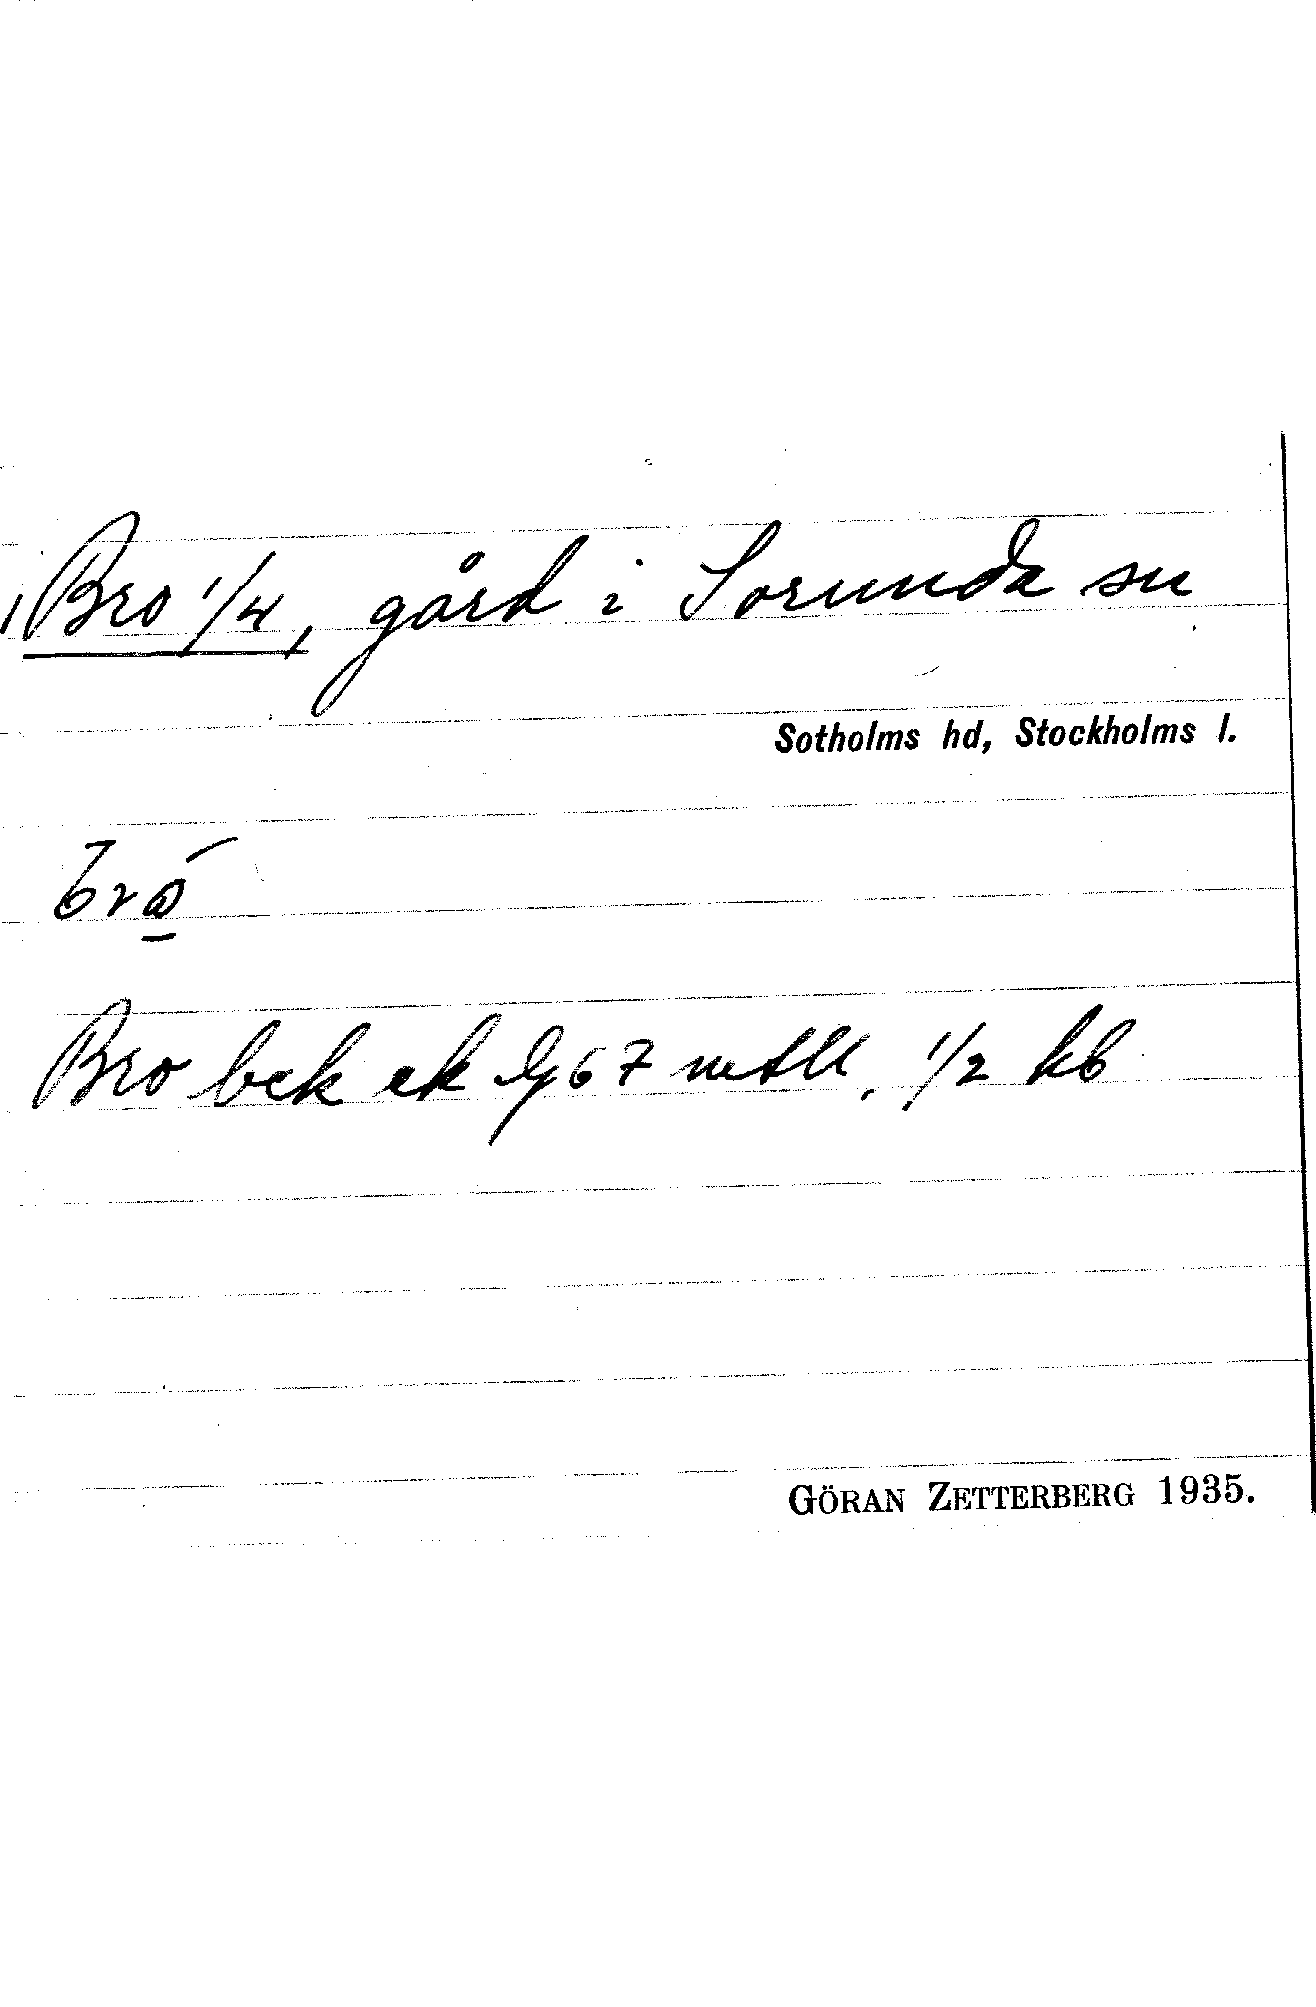 Bro 1/4, gård i Sorunda sn
Sotholms hd, Stockholms l.
Bro bek ek 67 mtll, 1/2 kb
GÖRAN ZETTERBERG 1935.